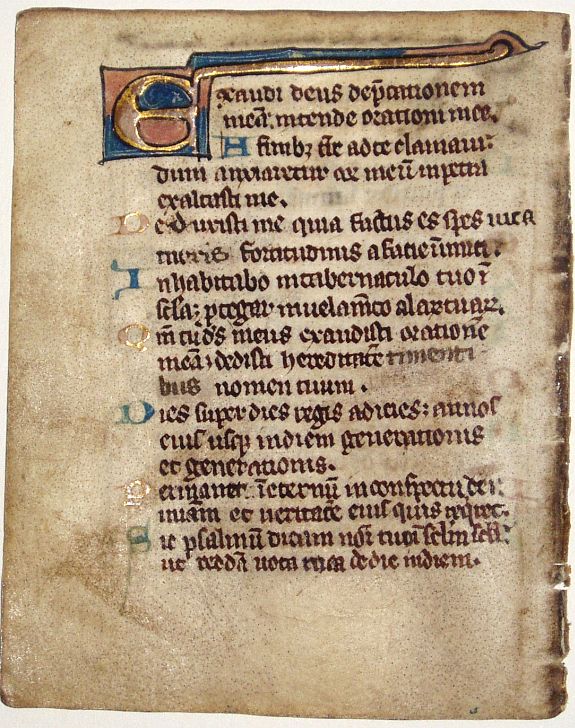 Exaudi deus dep̄cationem
meā. intende orationi mee.
A finibꝫ t̄re ad te clamaui
dum anxiaretur cor meū in petra
exaltasti me.
Deduxisti me quia factus es spes mea
turris fortitudinis a facie inimici.
Inhabitabo in tabernaculo tuo ī
sc̄la; ꝓtegar in uelam̄to alarū tuaꝝ.
Qm̄ tu ds̄ meus exaudisti orationē
meā; dedisti hereditatē timenti
bus nomen tuum.
Dies super dies regis adicies; annos
eius usqꝫ in diem generationis
et generationis.
Permanet ī eternū in conspectu dei
miam et ueritatē eius quis requiret.
Sic psalmū dicam nōi tuo ī sc̄lm sc̄li;
ut reddā uota mea de die in diem.